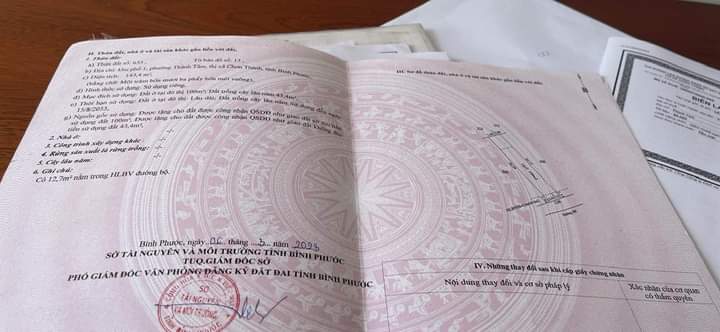 II. Thửa đất, nhà ở và tài sản khác gắn liền với đất
1. Thửa đất:
a) Thửa đất số: 633, Tờ bản đồ số: 15
b) Địa chỉ: khu phố 1, phường Thành Tâm, thị xã Chơn Thành, tỉnh Bình Phước
c) Diện tích: 143,4 m²
(bằng chữ: Một trăm bốn mươi ba phẩy bốn mét vuông),
d) Hình thức sử dụng: Sử dụng riêng.
đ) Mục đích sử dụng: Đất ở tại đô thị 100m²; Đất trồng cây lâu năm 43,4m².
e) Thời hạn sử dụng: Đất ở tại đô thị: Lâu dài; Đất trồng cây lâu năm: Sử dụng đến ngày
15/8/2055.
g) Nguồn gốc sử dụng: Được tặng cho đất được công nhận QSDĐ như giao đất có thu tiền
sử dụng đất 100m²; Được tặng cho đất được công nhận QSDĐ như giao đất không thu
tiền sử dụng đất 43,4m².
2. Nhà ở: -/-
3. Công trình xây dựng khác: -/-
4. Rừng sản xuất là rừng trồng: -/-
5. Cây lâu năm: -/-
6. Ghi chú:
Có 12,7m² nằm trong HLBV đường bộ.
Bình Phước, ngày 06 tháng 3 năm 2023
SỞ TÀI NGUYÊN VÀ MÔI TRƯỜNG TỈNH BÌNH PHƯỚC
TUQ.GIÁM ĐỐC SỞ
PHÓ GIÁM ĐỐC VĂN PHÒNG ĐĂNG KÝ ĐẤT ĐAI TỈNH BÌNH PHƯỚC
SỞ
TÀI NGUYÊN
VÀ MÔI TRƯỜNG
III. Sơ đồ thửa đất, nhà ở và tài sản khác gắn liền với đất
IV. Những thay đổi sau khi cấp giấy chứng nhận
Nội dung thay đổi và cơ sở pháp lý
Xác nhận của cơ quan
có thẩm quyền
BIÊN